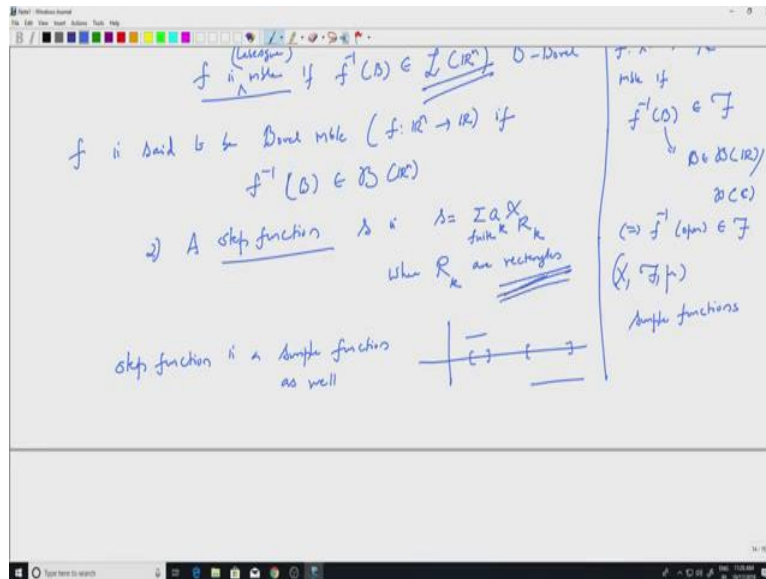 Note1 - Windows Journal
File Edit View Insert Actions Tools Help
(Lebesgue)
f is mble if f⁻¹(B) ∈ ℒ(ℝⁿ) B - Borel
f is said to be Borel mble (f: ℝⁿ → ℝ) if
f⁻¹(B) ∈ ℬ(ℝⁿ)
2) A step function s is s = Σ a_k χ_{R_k}
finite
where R_k are rectangles
step function is a simple function
as well
mble if
f⁻¹(B) ∈ ℱ
B ∈ ℬ(ℝ)/
ℬ(ℂ)
(=) f⁻¹(open) ∈ ℱ
(X, ℱ, μ)
simple functions
Type here to search
ENG